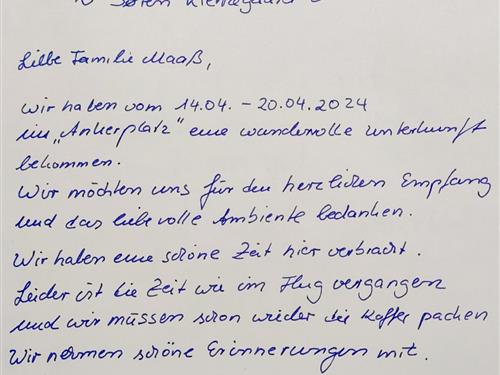 Søren Kierkegaard
Liebe Familie Maaß,
wir haben vom 14.04. - 20.04.2024
im „Ankerplatz" eine wundervolle Unterkunft
bekommen.
Wir möchten uns für den herzlichen Empfang
und das liebevolle Ambiente bedanken.
Wir haben eine schöne Zeit hier verbracht.
Leider ist die Zeit wie im Flug vergangen
und wir müssen schon wieder die Koffer packen
Wir nehmen schöne Erinnerungen mit.